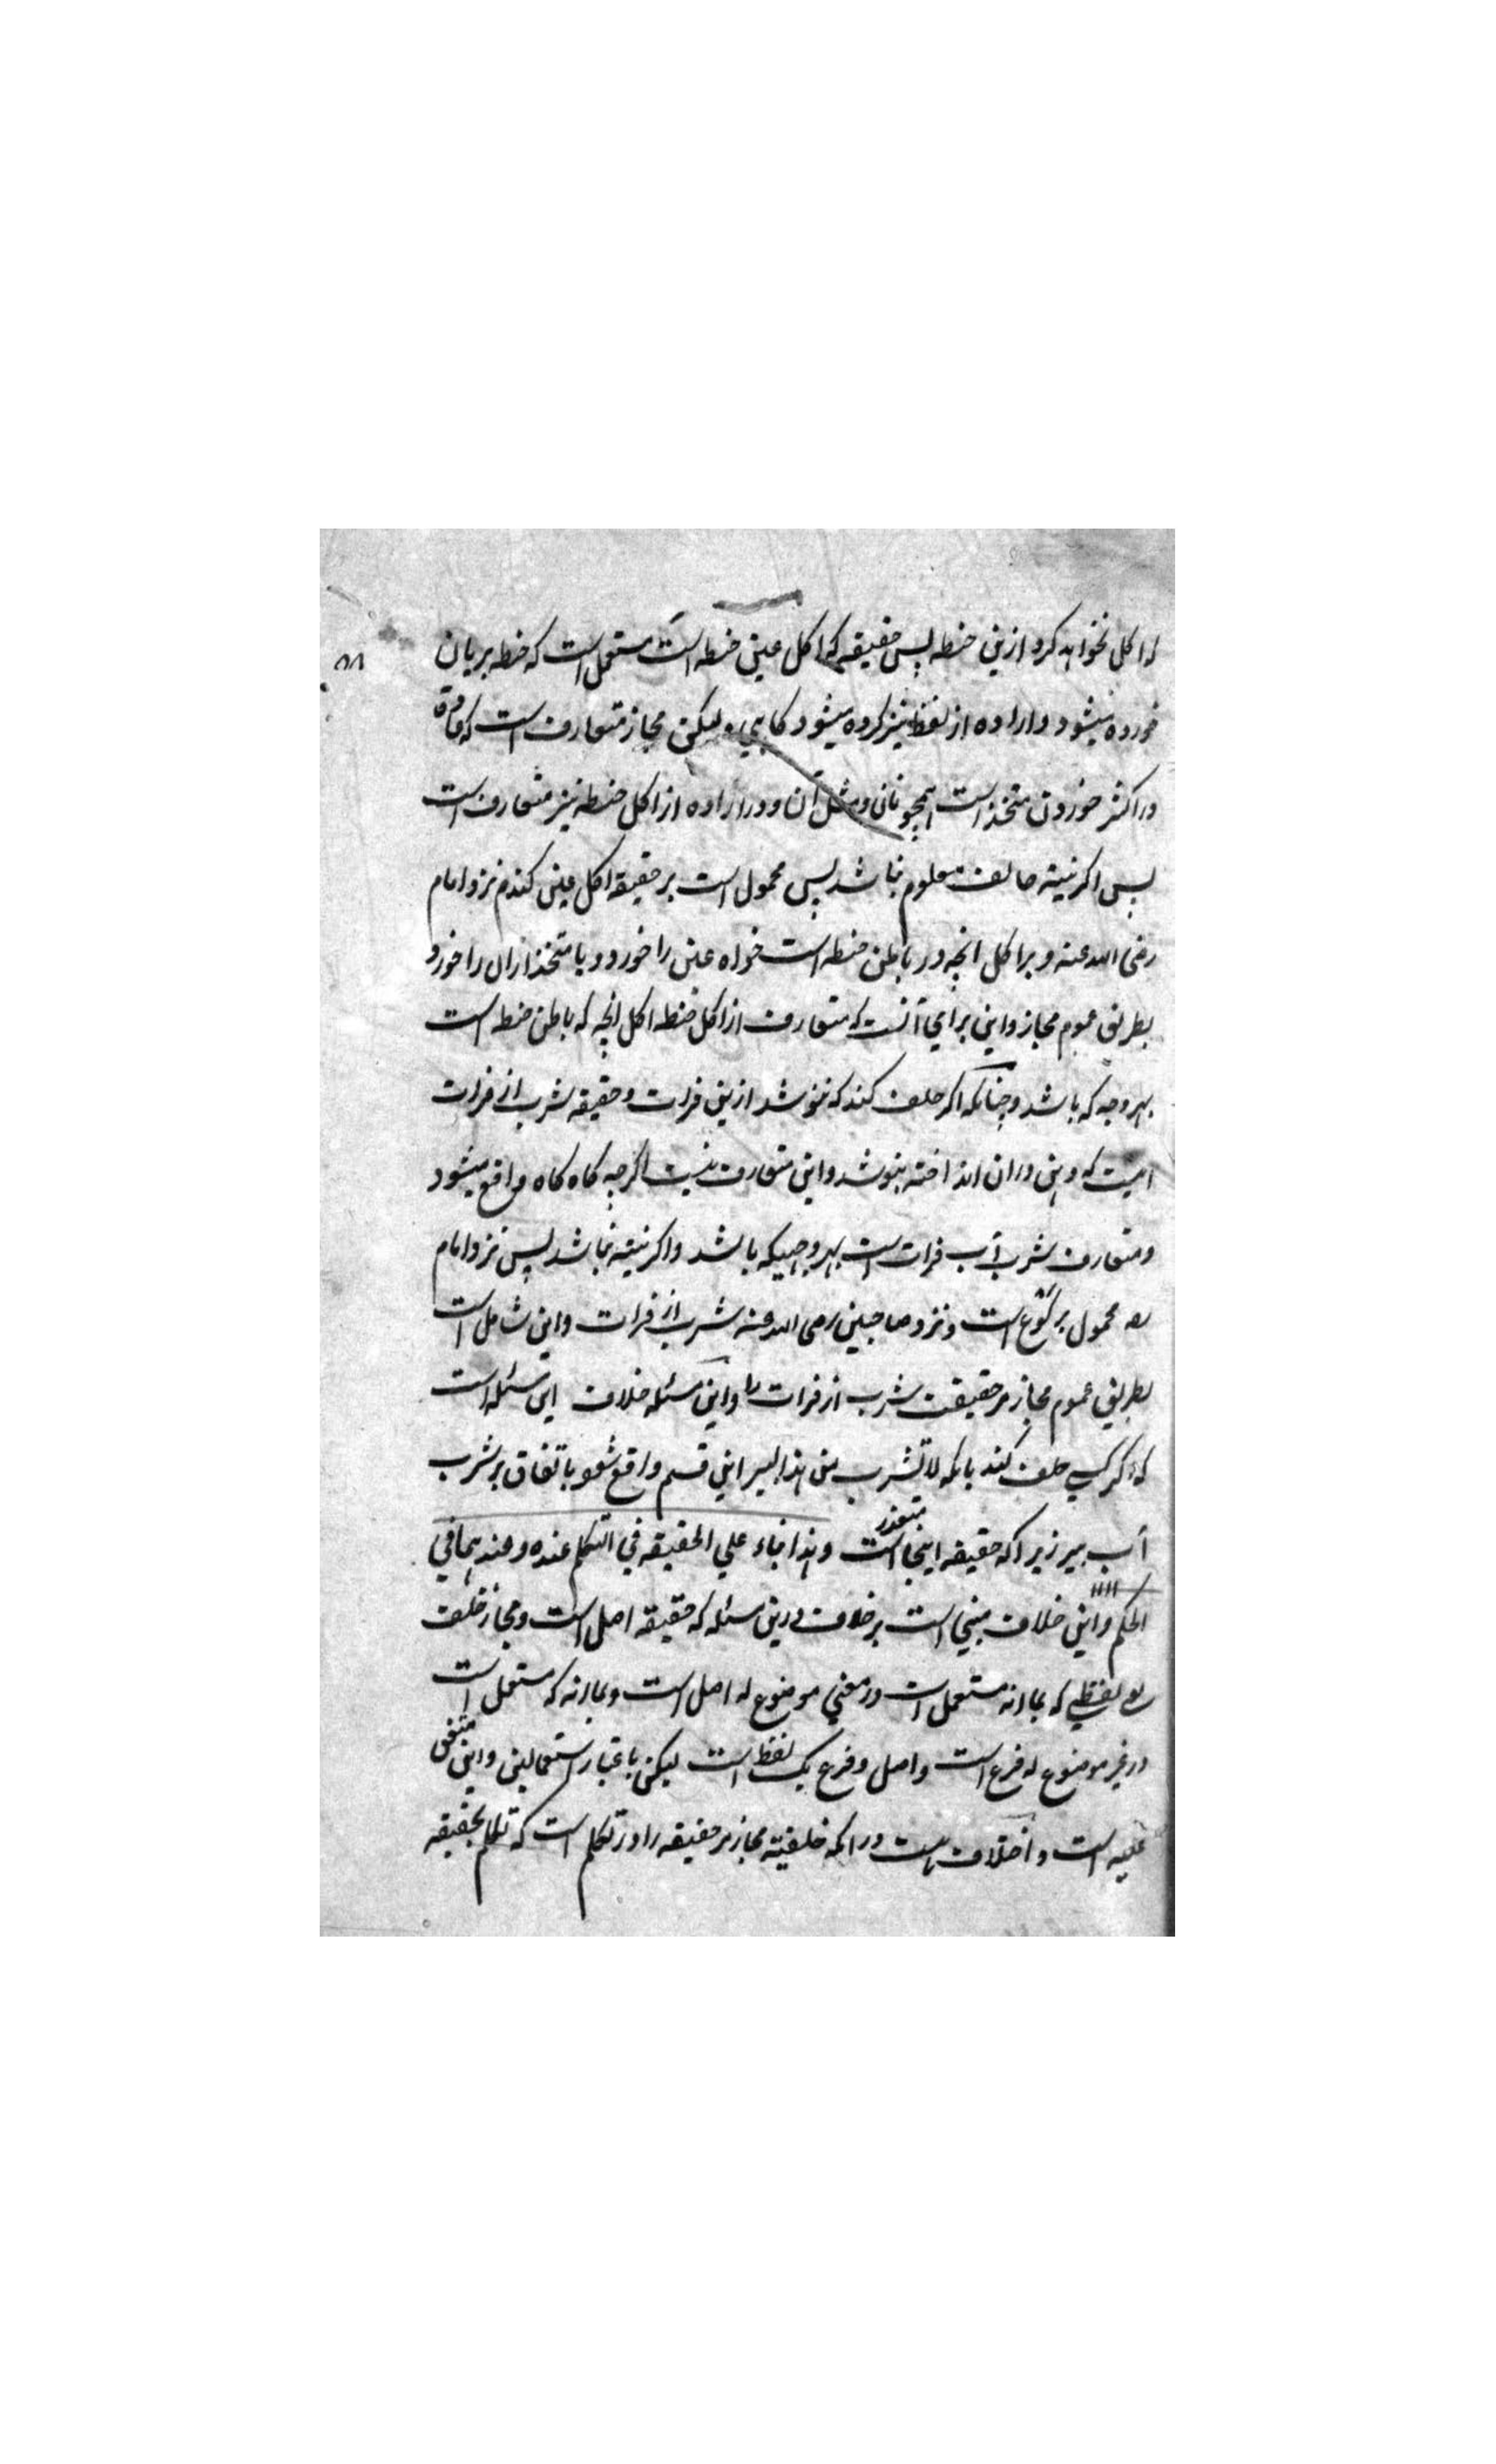 که اکل نخواهد کرد ازین حنطه پس حقیقه که اکل عین حنطه است مستعمل است که حنطه بریان
خورده میشود و اراده از لفظ نیز کرده میشود کاهی ولیکن مجاز متعارف است که
در اکثر خوردن متخذ است همچو نان و مثل آن و در اراده از اکل حنطه نیز متعارف است
پس اکر نیته حالف معلوم نباشد پس محمول است بر حقیقه اکل عین کندم نزد امام
رضی الله عنه و بر اکل انچه در باطن حنطه است خواه عین را خورد و یا متخذ از ان را خورد
بطریق عموم مجاز و این برای آنست که متعارف از اکل حنطه اکل انچه که باطن حنطه است
بهر وجه که باشد و چنانکه اکر حلف کند که ننوشد ازین فرات و حقیقه شرب از فرات
اینست که دهن در ان انداخته بنوشد و این متعارف نیست اکرچه کاه کاه واقع میشود
و متعارف شرب آب فرات است بهر وجهیکه باشد و اکر نیته نباشد پس نزد امام
رضہ محمول بر کرع است و نزد صاحبین رضی الله عنه شرب از فرات و این شامل است
بطریق عموم مجاز مر حقیقت شرب از فرات را و این مسئله خلاف این مسئله است
که اکر کسی حلف کند بانکه لا تشرب من هذا البیر این قسم واقع شود باتفاق بر شرب
آب بیر زیرا که حقیقه اینجا متعذر است و هذا بناء علي الحقیقه في التکلم عنده و عندهما في
الحکم و این خلاف مبني است بر خلاف درین مسئله که حقیقه اصل است و مجاز خلف
یعنی لفظي که بما انه مستعمل است در معني موضوع له اصل است و بما انه که مستعمل است
در غیر موضوع له فرع است و اصل و فرع یک لفظ است لیکن باعتبار استعمالین و این متفق
علیه است و اختلاف است در انکه خلفیة مجاز مر حقیقه را در تکلم است که تکلم بحقیقه